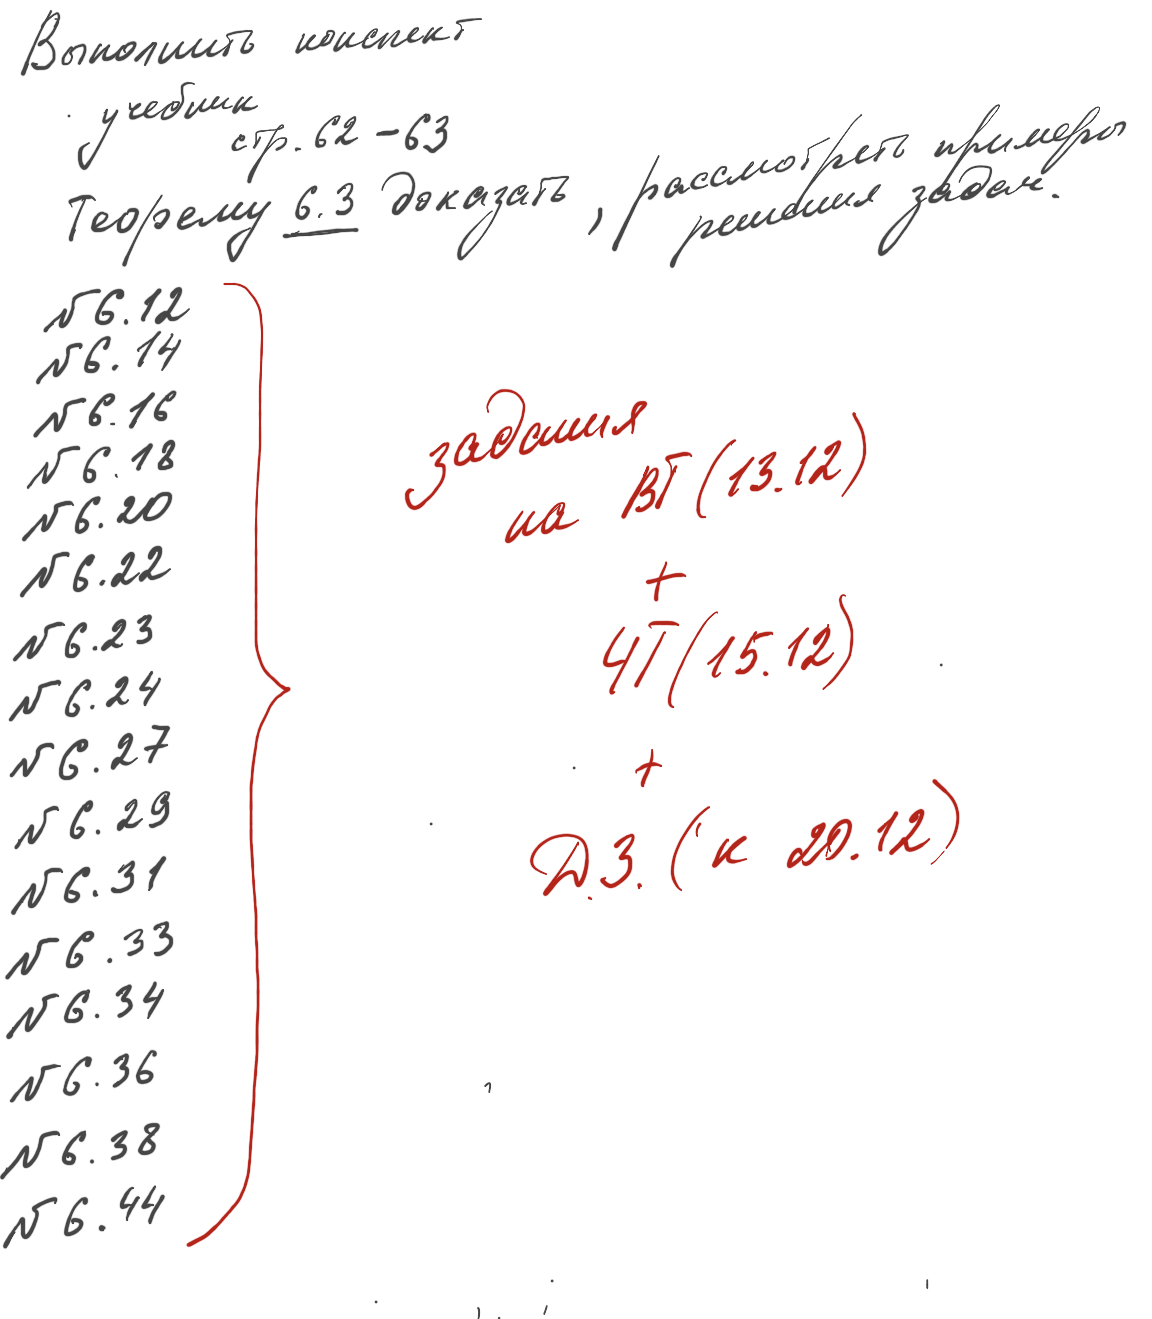 Выполнить конспект
учебник
стр. 62 - 63
Теорему 6.3 доказать, рассмотреть примеры
решения задач.
№6.12
№6.14
№6.16
№6.18
№6.20
№6.22
№6.23
№6.24
№6.27
№6.29
№6.31
№6.33
№6.34
№6.36
№6.38
№6.44
задания
на ВТ (13.12)
+
ЧТ (15.12)
+
Д.З. (к 20.12)